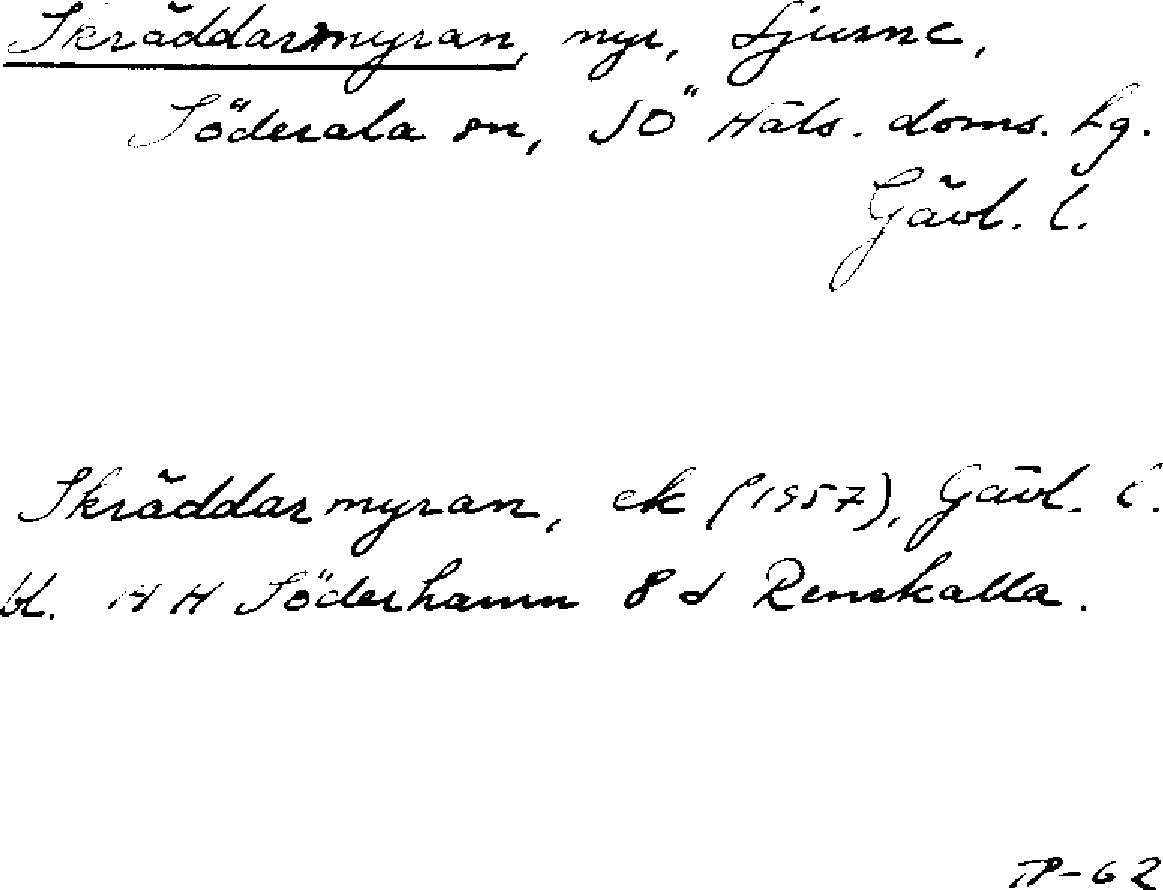 Skräddarmyran, myr, Ljusne,
Söderala sn, SÖ Häls. doms. hg.
Gävl. l.
Skräddarmyran, ek (1957), Gävl. l.
bl. 14 H Söderhamn 8 d Renskalla.
TP-62